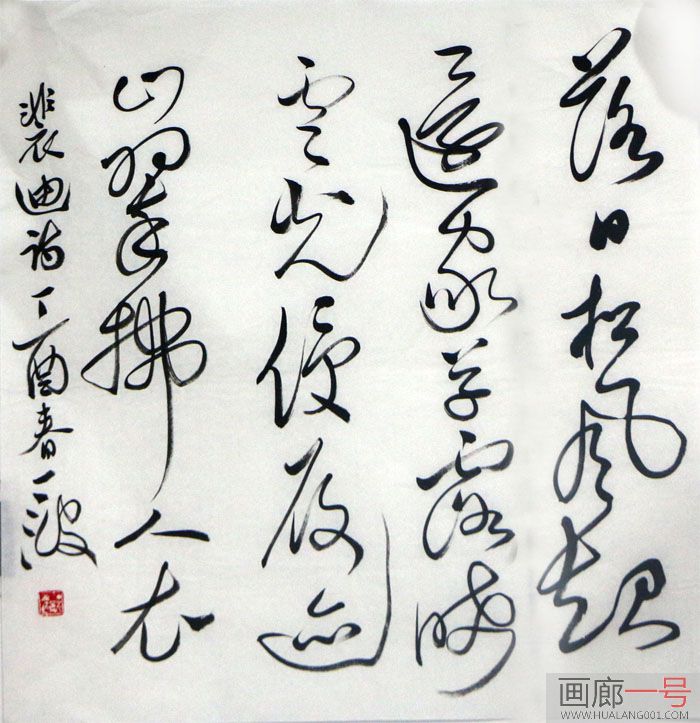 落日松風起
還家草露晞
雲光侵履迹
山翠拂人衣
裴迪詩丁酉春一波
画廊一号
WWW.HUALANG001.COM